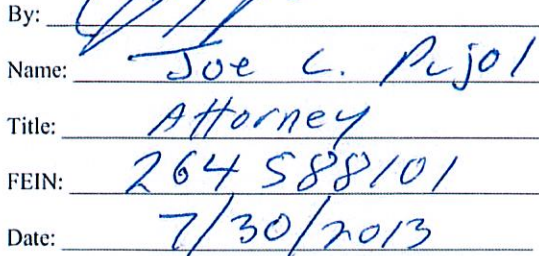 By:
Name: Joe C. Pujol
Title: Attorney
FEIN: 264 588101
Date: 7/30/2013